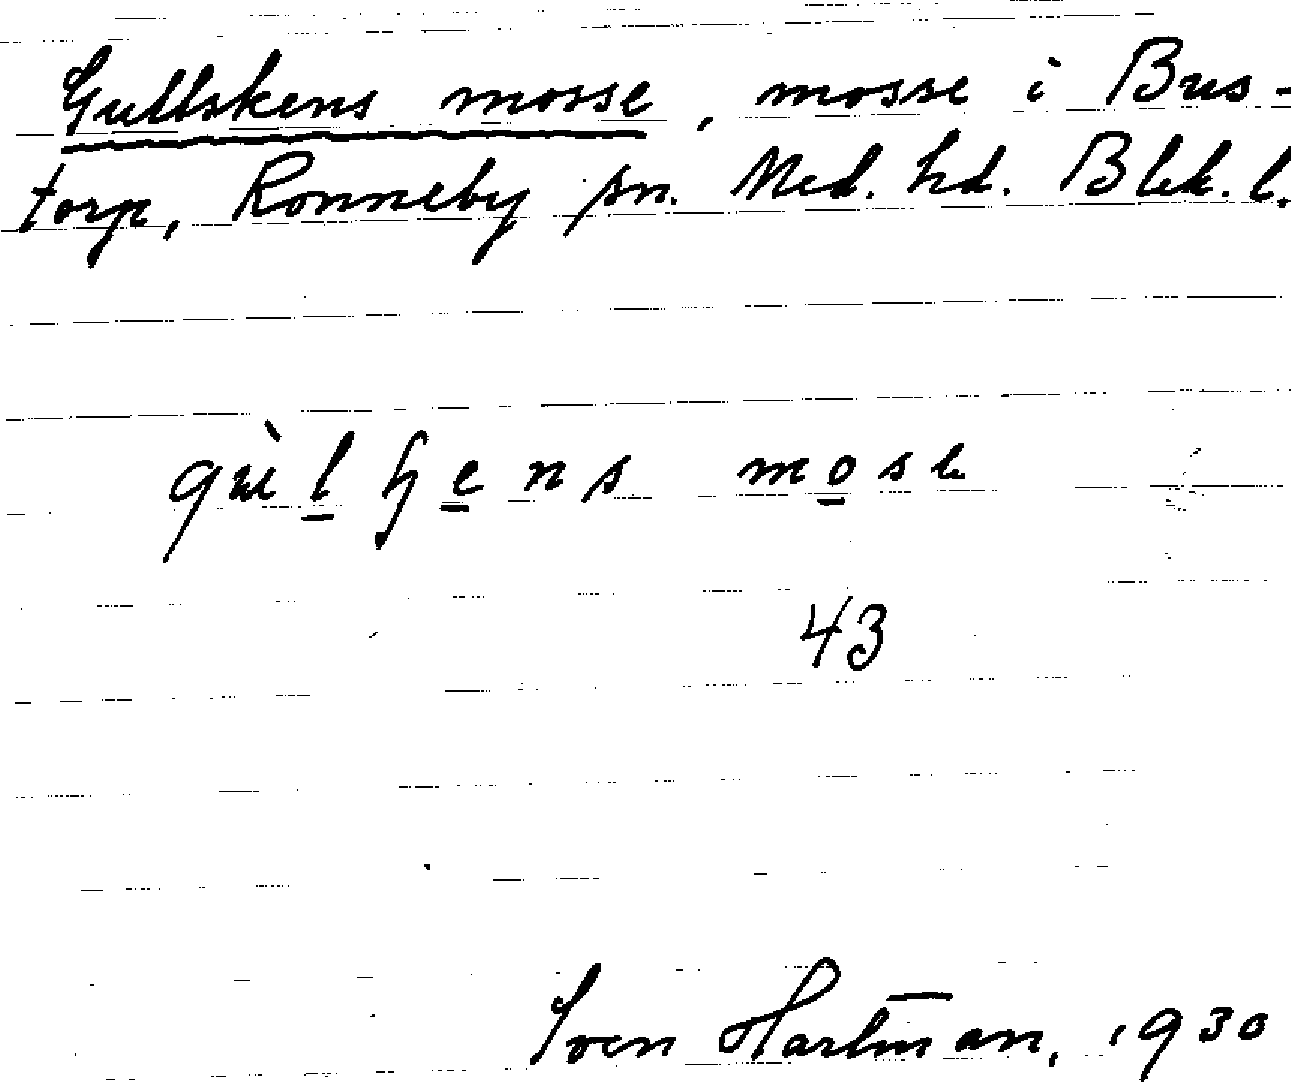 Gullskens mosse, mosse i Bus-
torp, Ronneby sn. Med. hd. Blek. l.
mose
43
Sven Hartman, 1930